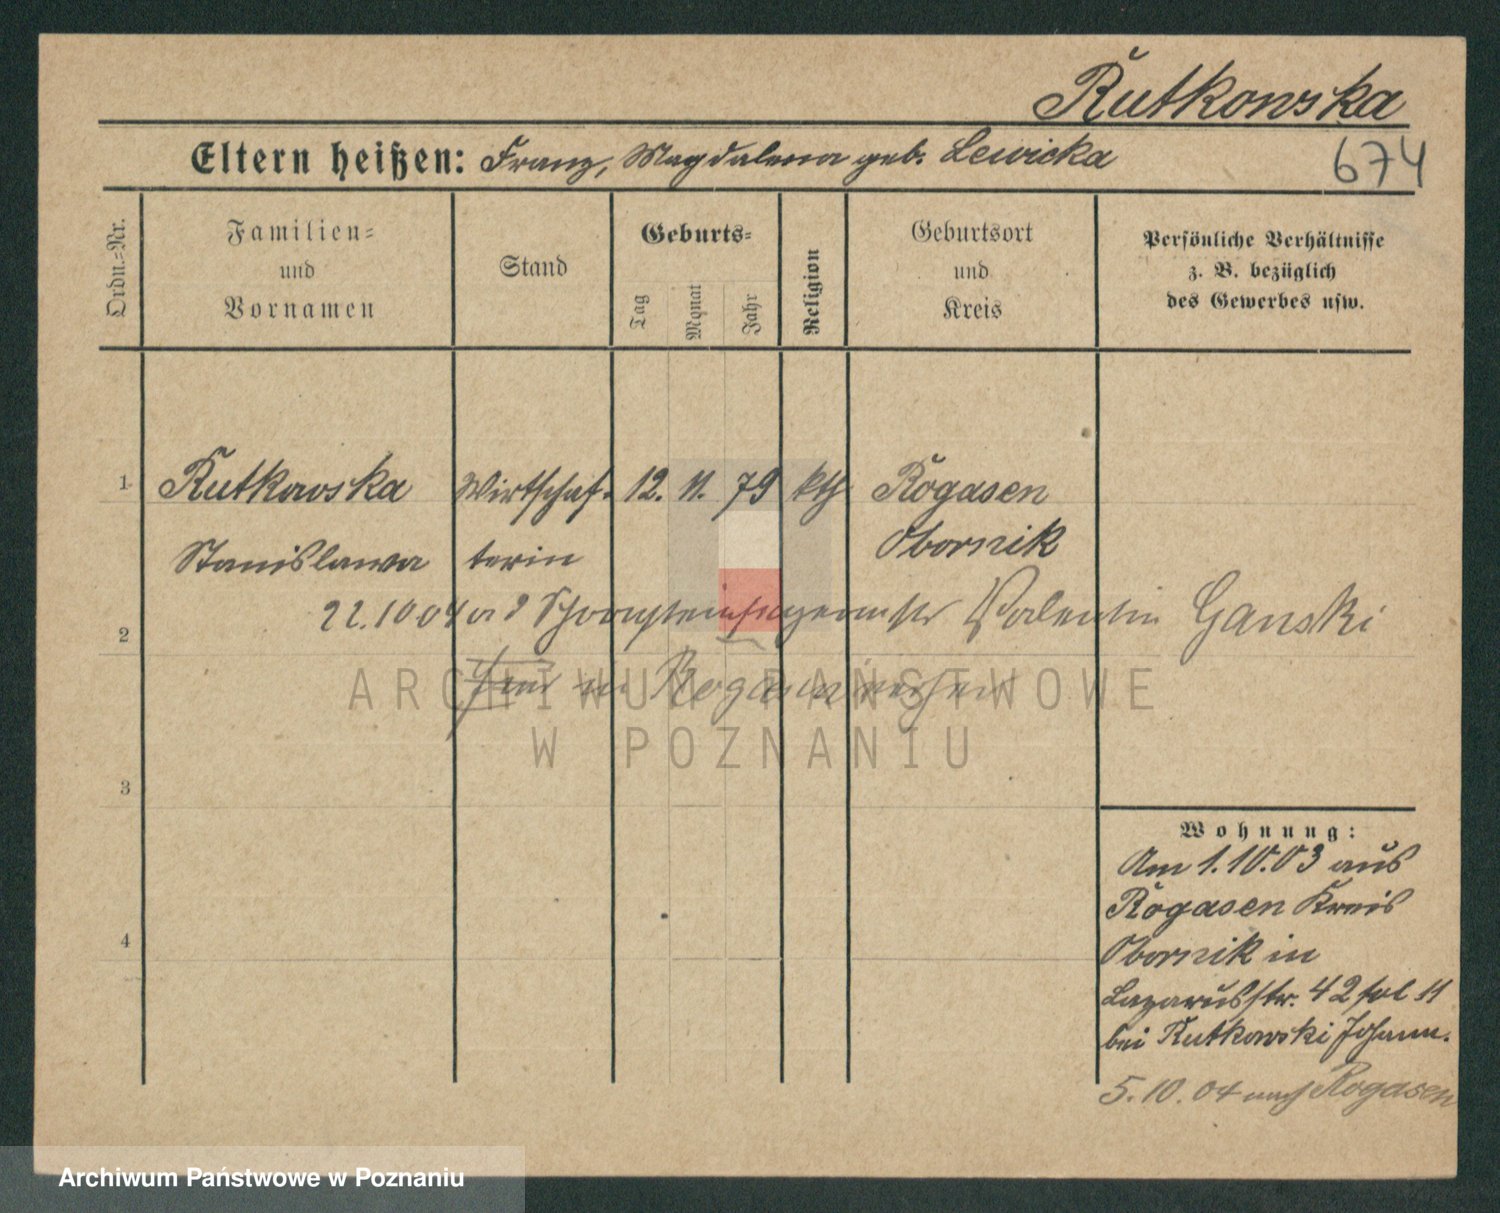 Rutkowska
Eltern heißen: Franz, Magdalena geb. Lewicka
674
Ordn.=Nr.
Familien=
und
Vornamen
Stand
Geburts=
Tag
Monat
Jahr
Religion
Geburtsort
und
Kreis
Persönliche Verhältnisse
z. B. bezüglich
des Gewerbes usw.
1 Rutkowska Wirtschaf- 12. 11. 79 kth Rogasen
Stanislawa terin Obornik
2 22.10 04 Schornsteinfegermstr Valentin Ganski
in Rogasen
ARCHIWUM PAŃSTWOWE
W POZNANIU
3
4
Wohnung:
Am 1.10.03 aus
Rogasen Kreis
Obornik in
Lazarusstr. 42 11
bei Rutkowski Johann.
5.10.04 nach Rogasen
Archiwum Państwowe w Poznaniu